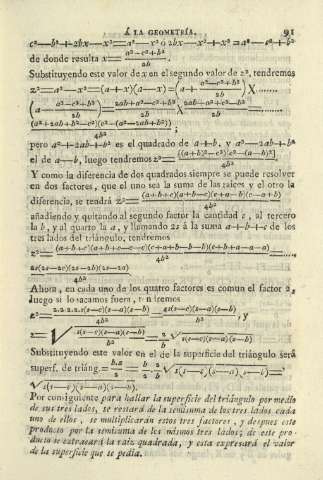 Á LA GEOMETRÍA. 91
c²—b²+2bx—x²=a²—x² ó 2bx—x²+x²=a²—c²+b²
de donde resulta x= (a²—c²+b²)/2b .
Substituyendo este valor de x en el segundo valor de z², tendremos
z²=a²—x²=(a+x)(a—x)=(a+ (a²—c²+b²)/2b) X ........
(a— (a²—c²+b²)/2b)= (2ab+a²—c²+b²)/2b X (2ab—a²+c²—b²)/2b =........
((a²+2ab+b²—c²)(c²—(a²—2ab+b²)))/4b² ;
pero a²+2ab+b² es el quadrado de a+b, y a²—2ab+b²
el de a—b, luego tendremos z²= (((a+b)²—c²)(c²—(a—b)²))/4b²
Y como la diferencia de dos quadrados siempre se puede resolver
en dos factores, que el uno sea la suma de las raices y el otro la
diferencia, se tendrá z²= ((a+b+c)(a+b—c)(c+a—b)(c—a+b))/4b²
añadiendo y quitando al segundo factor la cantidad c, al tercero
la b, y al quarto la a, y llamando 2s á la suma a+b+c de los
tres lados del triángulo, tendremos
z²= ((a+b+c)(a+b+c—c—c)(c+a+b—b—b)(c+b+a—a—a))/4b² =.....
(2s(2s—2c)(2s—2b)(2s—2a))/4b²
Ahora, en cada uno de los quatro factores es comun el factor 2,
luego si lo sacamos fuera, tendremos
z²= (2.2.2.2.s(s—c)(s—a)(s—b))/4b² = (4s(s—c)(s—a)(s—b))/b² , y
z= 2√(s(s—c)(s—a)(s—b))/b² = 2/b √s(s—c)(s—a)(s—b)
Substituyendo este valor en el de la superficie del triángulo será
superf. de triáng.= b.z/2 = b/2 · 2/b √s(s—c)(s—a)(s—b)=
√s(s—c)(s—a)(s—b).
Por consiguiente para hallar la superficie del triángulo por medio
de sus tres lados, se restará de la semisuma de los tres lados cada
uno de ellos, se multiplicarán estos tres factores, y despues este
producto por la semisuma de los mismos tres lados; de este pro-
ducto se extraerá la raiz quadrada, y esta expresará el valor
de la superficie que se pedia.